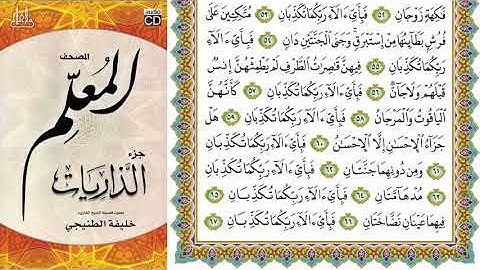 audio
CD
المصحف
المُعلِّم
جزء
الذاريات
بصوت فضيلة الشيخ القارئ
خليفة الطنيجي
فَٰكِهَةٍ زَوْجَانِ ٥٢ فَبِأَيِّ ءَالَآءِ رَبِّكُمَا تُكَذِّبَانِ ٥٣ مُتَّكِـِٔينَ عَلَىٰ
فُرُشٍۭ بَطَآئِنُهَا مِنْ إِسْتَبْرَقٍ ۚ وَجَنَى ٱلْجَنَّتَيْنِ دَانٍ ٥٤ فَبِأَيِّ ءَالَآءِ
رَبِّكُمَا تُكَذِّبَانِ ٥٥ فِيهِنَّ قَٰصِرَٰتُ ٱلطَّرْفِ لَمْ يَطْمِثْهُنَّ إِنسٌ
قَبْلَهُمْ وَلَا جَآنٌّ ٥٦ فَبِأَيِّ ءَالَآءِ رَبِّكُمَا تُكَذِّبَانِ ٥٧ كَأَنَّهُنَّ
ٱلْيَاقُوتُ وَٱلْمَرْجَانُ ٥٨ فَبِأَيِّ ءَالَآءِ رَبِّكُمَا تُكَذِّبَانِ ٥٩ هَلْ
جَزَآءُ ٱلْإِحْسَٰنِ إِلَّا ٱلْإِحْسَٰنُ ٦٠ فَبِأَيِّ ءَالَآءِ رَبِّكُمَا تُكَذِّبَانِ
٦١ وَمِن دُونِهِمَا جَنَّتَانِ ٦٢ فَبِأَيِّ ءَالَآءِ رَبِّكُمَا تُكَذِّبَانِ
٦٣ مُدْهَآمَّتَانِ ٦٤ فَبِأَيِّ ءَالَآءِ رَبِّكُمَا تُكَذِّبَانِ ٦٥
فِيهِمَا عَيْنَانِ نَضَّاخَتَانِ ٦٦ فَبِأَيِّ ءَالَآءِ رَبِّكُمَا تُكَذِّبَانِ ٦٧